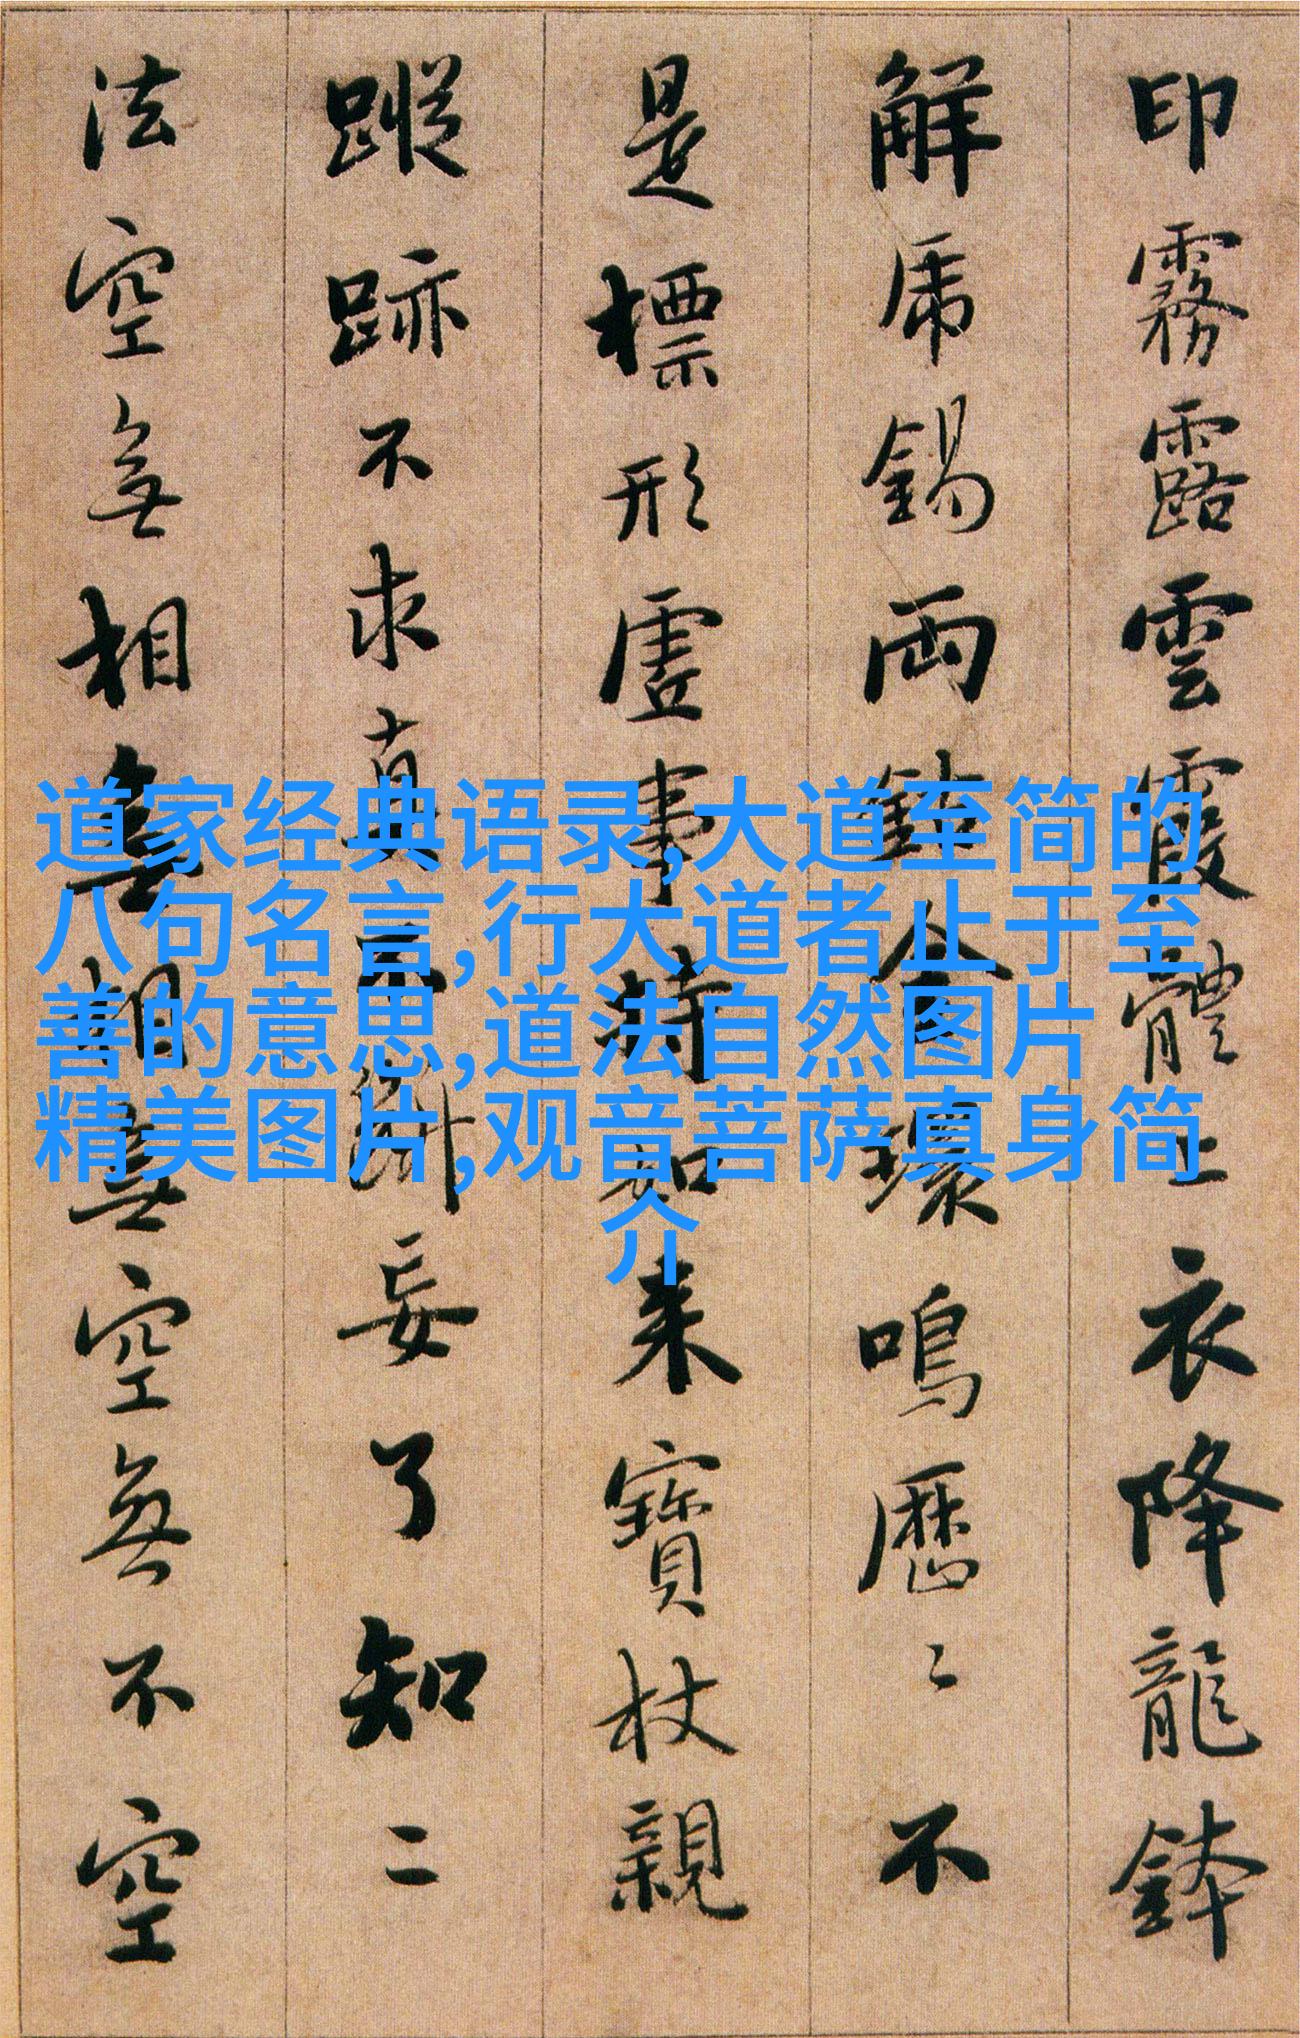 印霧露雲霞體上衣降龍鉢
解虎錫兩鈷金環鳴歷〻不
是標形虛事持如來寶杖親
蹤跡不求真不斷妄了知二
法空無相無相無空無不空
道家经典语录,大道至简的
八句名言,行大道者止于至
善的意思,道法自然图片
精美图片,观音菩萨真身简
介